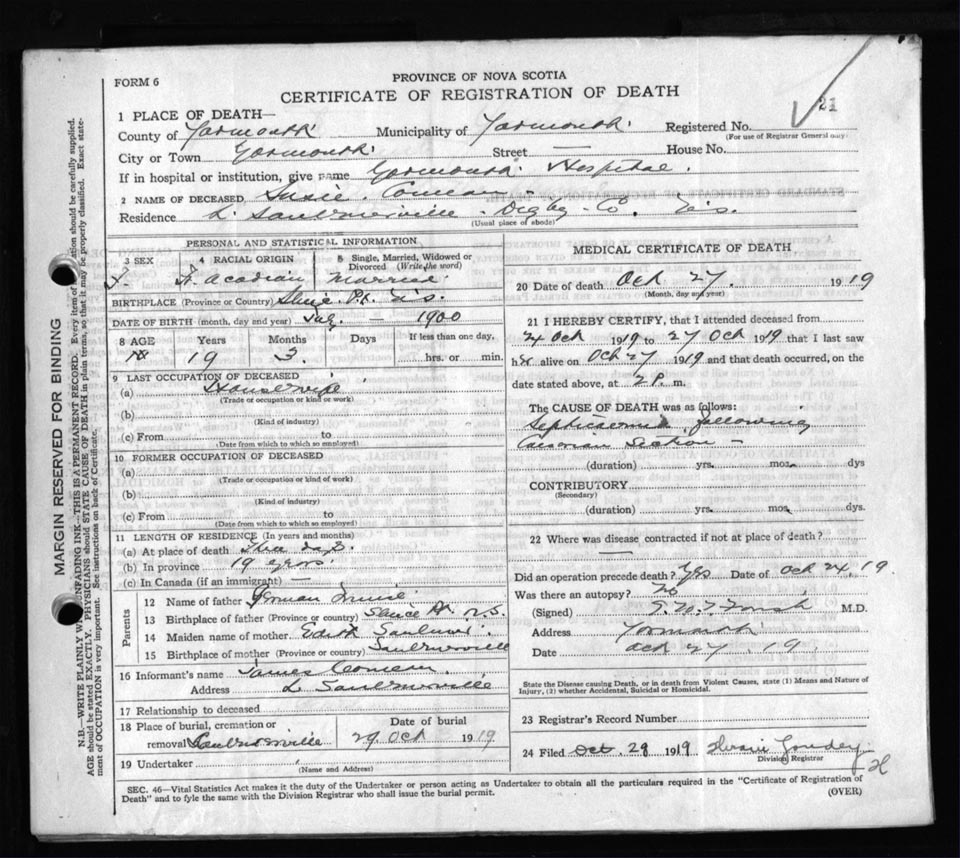 FORM 6
PROVINCE OF NOVA SCOTIA
CERTIFICATE OF REGISTRATION OF DEATH
21
1 PLACE OF DEATH—
County of Yarmouth Municipality of Yarmouth Registered No.
(For use of Registrar General only)
City or Town Yarmouth Street — House No.
If in hospital or institution, give name Yarmouth Hospital.
2 NAME OF DECEASED Susie Comeau
Residence L. Saulnierville - Digby Co. N.S.
(Usual place of abode)
PERSONAL AND STATISTICAL INFORMATION
3 SEX 4 RACIAL ORIGIN 5 Single, Married, Widowed or Divorced (Write the word)
F. F. Acadian Married
BIRTHPLACE (Province or Country) N.S.
DATE OF BIRTH (month, day and year) July — 1900
8 AGE Years Months Days If less than one day,
19 3 hrs. or min.
9 LAST OCCUPATION OF DECEASED
(a) Housewife
(Trade or occupation or kind of work)
(b)
(Kind of industry)
(c) From to
(Date from which to which so employed)
10 FORMER OCCUPATION OF DECEASED
(a)
(Trade or occupation or kind of work)
(b)
(Kind of industry)
(c) From to
(Date from which to which so employed)
11 LENGTH OF RESIDENCE (In years and months)
(a) At place of death Three days.
(b) In province 19 years.
(c) In Canada (if an immigrant) —
Parents
12 Name of father
13 Birthplace of father (Province or country) N.S.
14 Maiden name of mother Edith Saulnier
15 Birthplace of mother (Province or country) Saulnierville
16 Informant's name James Comeau
Address L. Saulnierville
17 Relationship to deceased
18 Place of burial, cremation or removal Saulnierville
Date of burial
29 Oct 1919
19 Undertaker
(Name and Address)
MEDICAL CERTIFICATE OF DEATH
20 Date of death Oct 27 1919
(Month, day and year)
21 I HEREBY CERTIFY, that I attended deceased from
24 Oct 1919 to 27 Oct 1919 that I last saw
her alive on Oct 27 1919 and that death occurred, on the
date stated above, at 2 P. m.
The CAUSE OF DEATH was as follows:
Septicaemia following
Caesarian Section —
(duration) yrs. mos. dys
CONTRIBUTORY
(Secondary)
(duration) yrs. mos. dys.
22 Where was disease contracted if not at place of death?
—
Did an operation precede death? Yes Date of Oct 24, 19
Was there an autopsy? No
(Signed) M.D.
Address Yarmouth
Date Oct 27 19
State the Disease causing Death, or in death from Violent Causes, state (1) Means and Nature of
Injury, (2) whether Accidental, Suicidal or Homicidal.
23 Registrar's Record Number
24 Filed Oct. 29 1919
Division Registrar
SEC. 46—Vital Statistics Act makes it the duty of the Undertaker or person acting as Undertaker to obtain all the particulars required in the "Certificate of Registration of
Death" and to fyle the same with the Division Registrar who shall issue the burial permit.
(OVER)
MARGIN RESERVED FOR BINDING